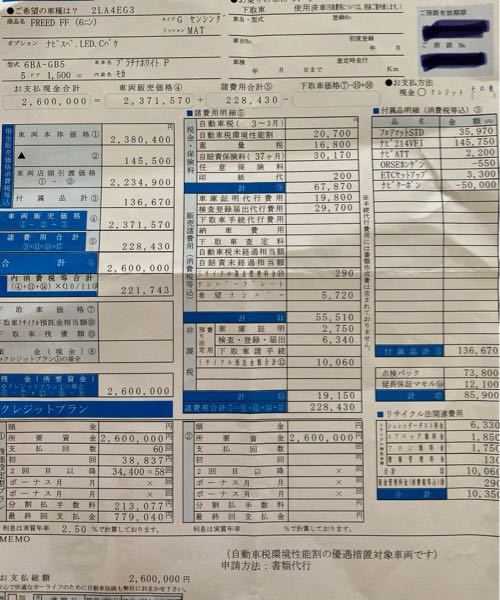 ■ご希望の車種は？ 2LA4EG3
車名 FREED FF (6ニン)
タイプ G センシング
ミッション MAT
オプション ナビスペ.LED.Cパケ
型式 GBA-GB5
5ドア 1,500cc
車体色 プラチナホワイト P
内装色 モカ
下取車 使用済車
車名・型式 登録No
車台No. 初度登録 年 月
車検 年 月 日まで 査定時走行 Km
ご商談有効期限
ご商談No.
お支払現金合計 車両販売価格④ 諸費用合計⑤ 下取車価格⑦-⑮+⑯
2,600,000 = 2,371,570 + 228,430 -
■お支払方法
現金 ○ クレジット その他
現金販売価格消費税等込
車両本体価格① 2,380,400
▲ ② 145,500
車両店頭引渡価格 ①-② 2,234,900
付属品計③ 136,670
車両販売価格④ 2,371,570
諸費用合計⑤ 228,430
合計⑥ 2,600,000
内消費税等合計 (④+⑪+⑭)×(10/110) 221,743
下取車価格⑦
下取車リサイクル預託金相当額⑯
下取車残債額⑮
頭金(現金)⑧
残金(所要資金) 2,600,000
■諸費用明細⑤
税金・保険料
自動車税( 3～3月)
自動車税環境性能割 20,700
重量税 16,800
自賠責保険料(37ヶ月) 30,170
任意保険料
印紙代 200
計⑨ 67,870
販売諸費用(消費税等込)
車庫証明代行費用 19,800
検査登録届出代行費用 29,700
下取車手続代行費用
納車費用
下取車査定料
自動車税未経過相当額
自賠責未経過相当額
リサイクル資金管理料金 290
ナンバープレート
希望ナンバー 5,720
計⑪ 55,510
非課税
預り法定費用
車庫証明 2,750
検査・登録・届出 6,340
下取車諸手続
リサイクル預託金額合計⑫ 10,060
計⑬ 19,150
諸費用合計 228,430
※手続代行費用には書類作成費は含まれておりません。
■付属品明細(消費税等込)③
フロアマットSTD 35,970
ナビ214VFI 144,750
ナビATT 2,200
ORSEカンゲン -550
ETCセットアップ 3,300
ナビクーポン -50,000
付属品計③ 136,670
点検パック 73,800
延長保証マモル 12,100
計 85,900
■リサイクル法関連費用
シュレッダーダスト料金 6,330
エアバッグ類料金 1,850
フロン類料金 1,750
情報管理料金 130
合計⑫ 10,060
資金管理料金(消費税等込) 290
合計 10,350
クレジットプラン
頭金 円
所要資金 2,600,000円
支払回数 60回
初回 38,837円
2回目以降 34,400×58回
ボーナス月 月 月
ボーナス月 × 回
分割払手数料 213,077円
最終回支払金 779,040円
利息は実質年率 2.50 %で計算しております。
②
頭金 円
所要資金 2,600,000円
支払回数 回
初回 円
2回目以降 × 回
ボーナス月 月 月
ボーナス月 × 回
分割払手数料 円
最終回支払金 円
利息は実質年率 %で計算しております。
MEMO
(自動車税環境性能割の優遇措置対象車両です)
申請方法：書類代行
お支払総額 2,600,000円